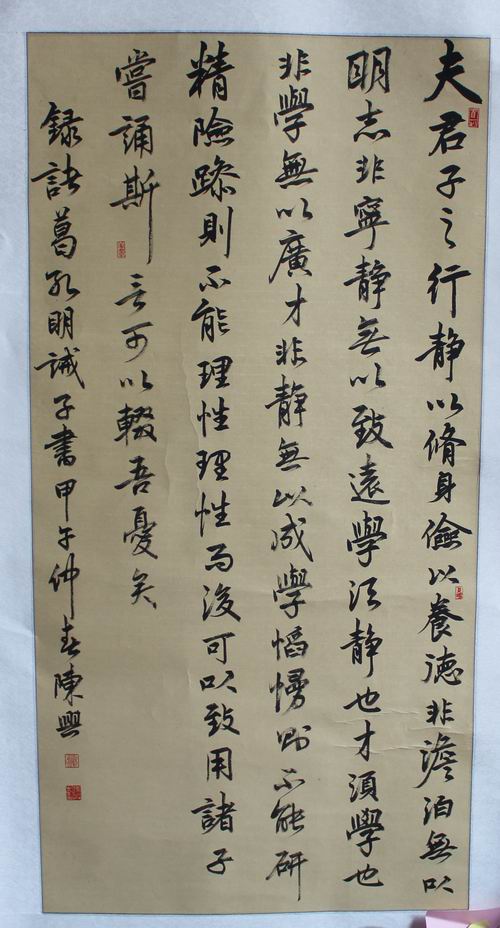 夫君子之行静以脩身儉以養德非澹泊無以
明志非寧静無以致遠學須静也才須學也
非學無以廣才非静無以成學慆慢則不能研
精險躁則不能理性理性而後可以致用諸子
嘗誦斯言可以輟吾憂矣
録諸葛孔明誡子書甲午仲春陳興